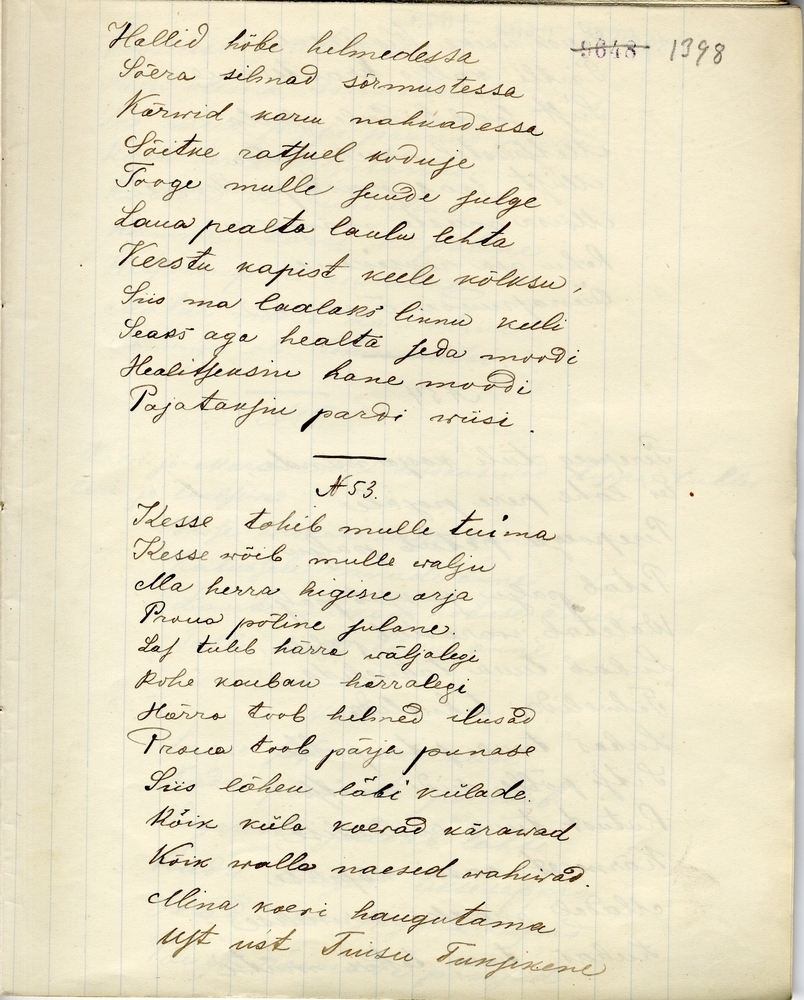 9648 1398
Hallid hõbe helmedessa
Sõera silmad sõrmustessa
Kärwid karu nahkadessa
Sõitke ratsuel koduje
Tooge mulle suude sulge
Laua pealta laulu lehta
Kerstu kapist keele kõlksu,
Siis ma laalaks linnu keeli
Seaks aga healta seda moodi
Healitseksin hane moodi
Pajataksin pardi wiisi.
N 53.
Kesse tohib mulle tuima
Kesse wõib mulle walju
Ma herra higine orja
Proua põline sulane.
Las tuleb härra wäljalegi
Rohe kauban härralegi
Härra toob helmed ilusad
Proua toob pärja punase
Siis lõhen läbi külade.
Kõik küla koerad kärawad
Kõik walla naesed wahiwad.
Mina koeri haugutama
Ust ust Tuisu Tunsikene